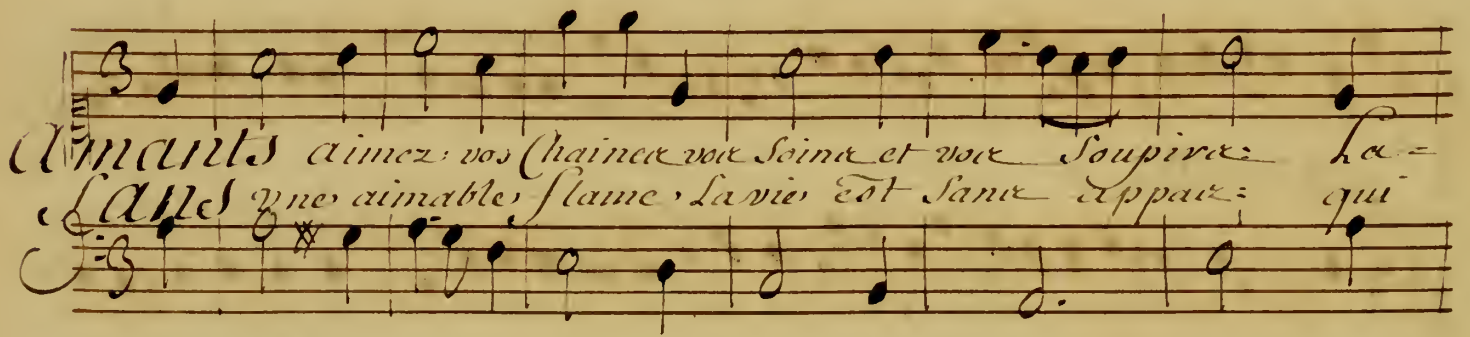 Amants aimez vos Chaines vos soins et vos soupirs: La=
Sans une aimable flame, La vie est sans appas: qui